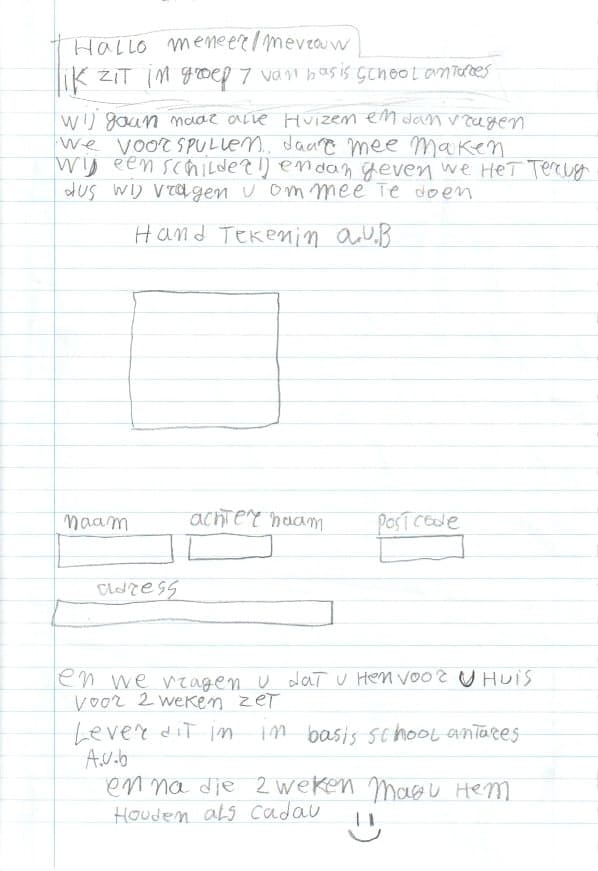 Hallo meneer/mevrouw
ik zit in groep 7 van basis school antares
wij gaan naar alle Huizen en dan vragen
we voor spullen daar mee maken
wij een schilderij en dan geven we Het terug
dus wij vragen u om mee te doen
Hand Tekenin a.u.B
naam achter naam postcode
adress
en we vragen u dat u Hen voor u Huis
voor 2 weken zet
Lever dit in in basis school antares
A.u.b
en na die 2 weken mag u Hem
Houden als cadau